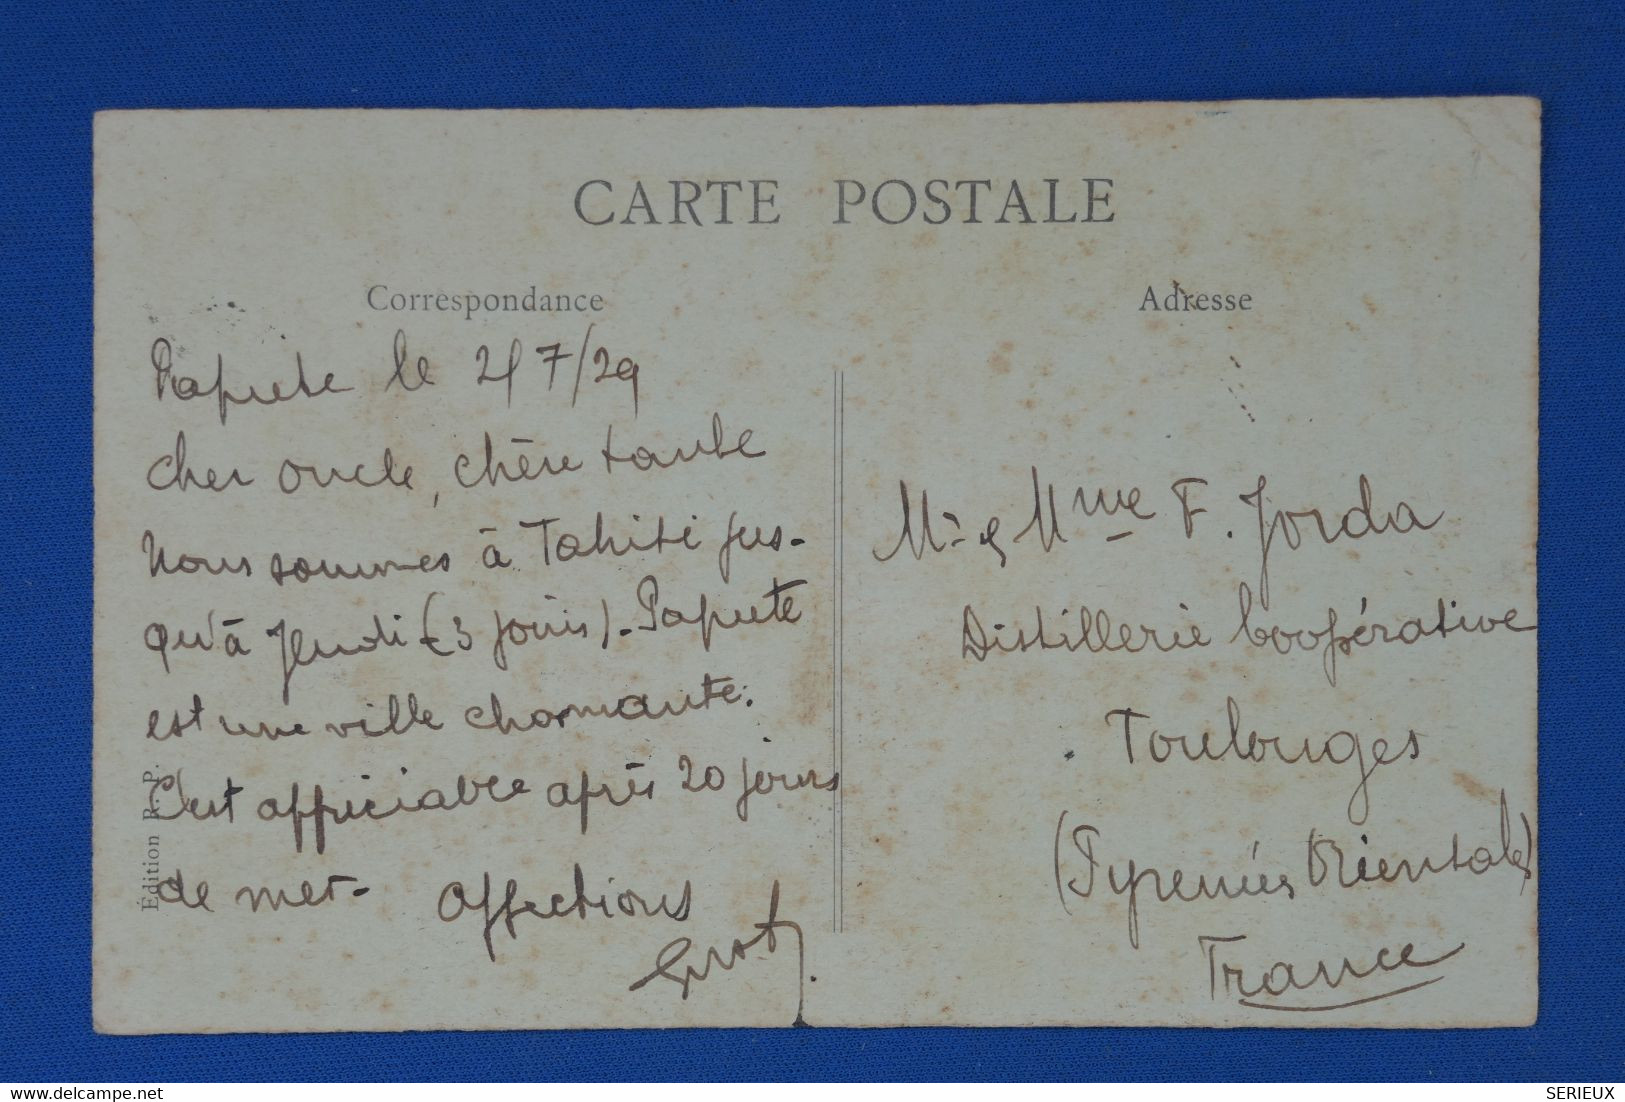 CARTE POSTALE
Correspondance
Papeete le 7/29
cher oncle, chère tante
Nous sommes à Tahiti jus-
qu'à Jeudi (3 jours). Papeete
est une ville charmante.
C'est appréciable après 20 jours
de mer - Affections
Édition R. P.
Adresse
Mr & Mme F. Jorda
Distillerie Coopérative
Toulouges
(Pyrenées Orientales)
France
www.delcampe.net
SERIEUX